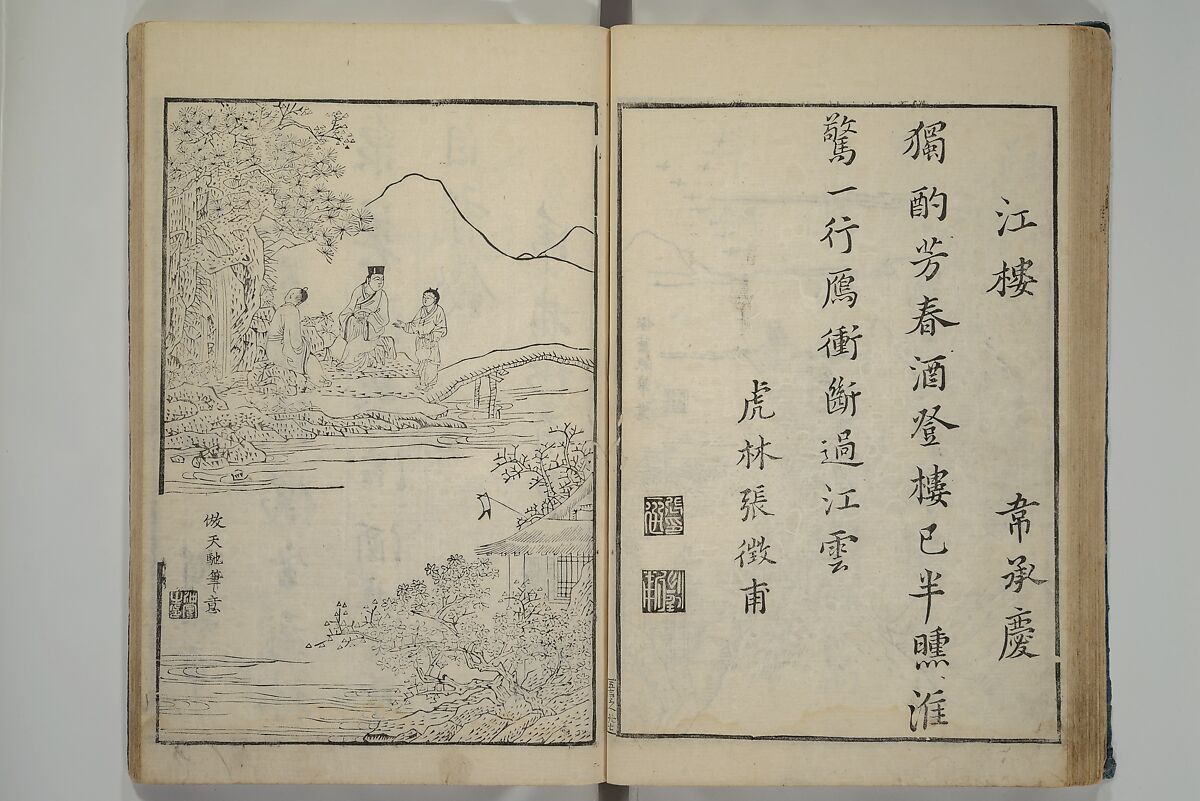 江樓 韋承慶
獨酌芳春酒登樓已半曛誰
驚一行鴈衝斷過江雲
虎林張徵甫
倣天馳筆意